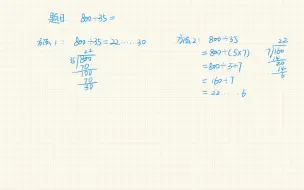 题目 800÷35=
方法1: 800÷35=22……30
22
35/800
70
100
70
30
方法2: 800÷35
=800÷(5×7)
=800÷5÷7
=160÷7
=22……6
22
7/160
14
20
14
6